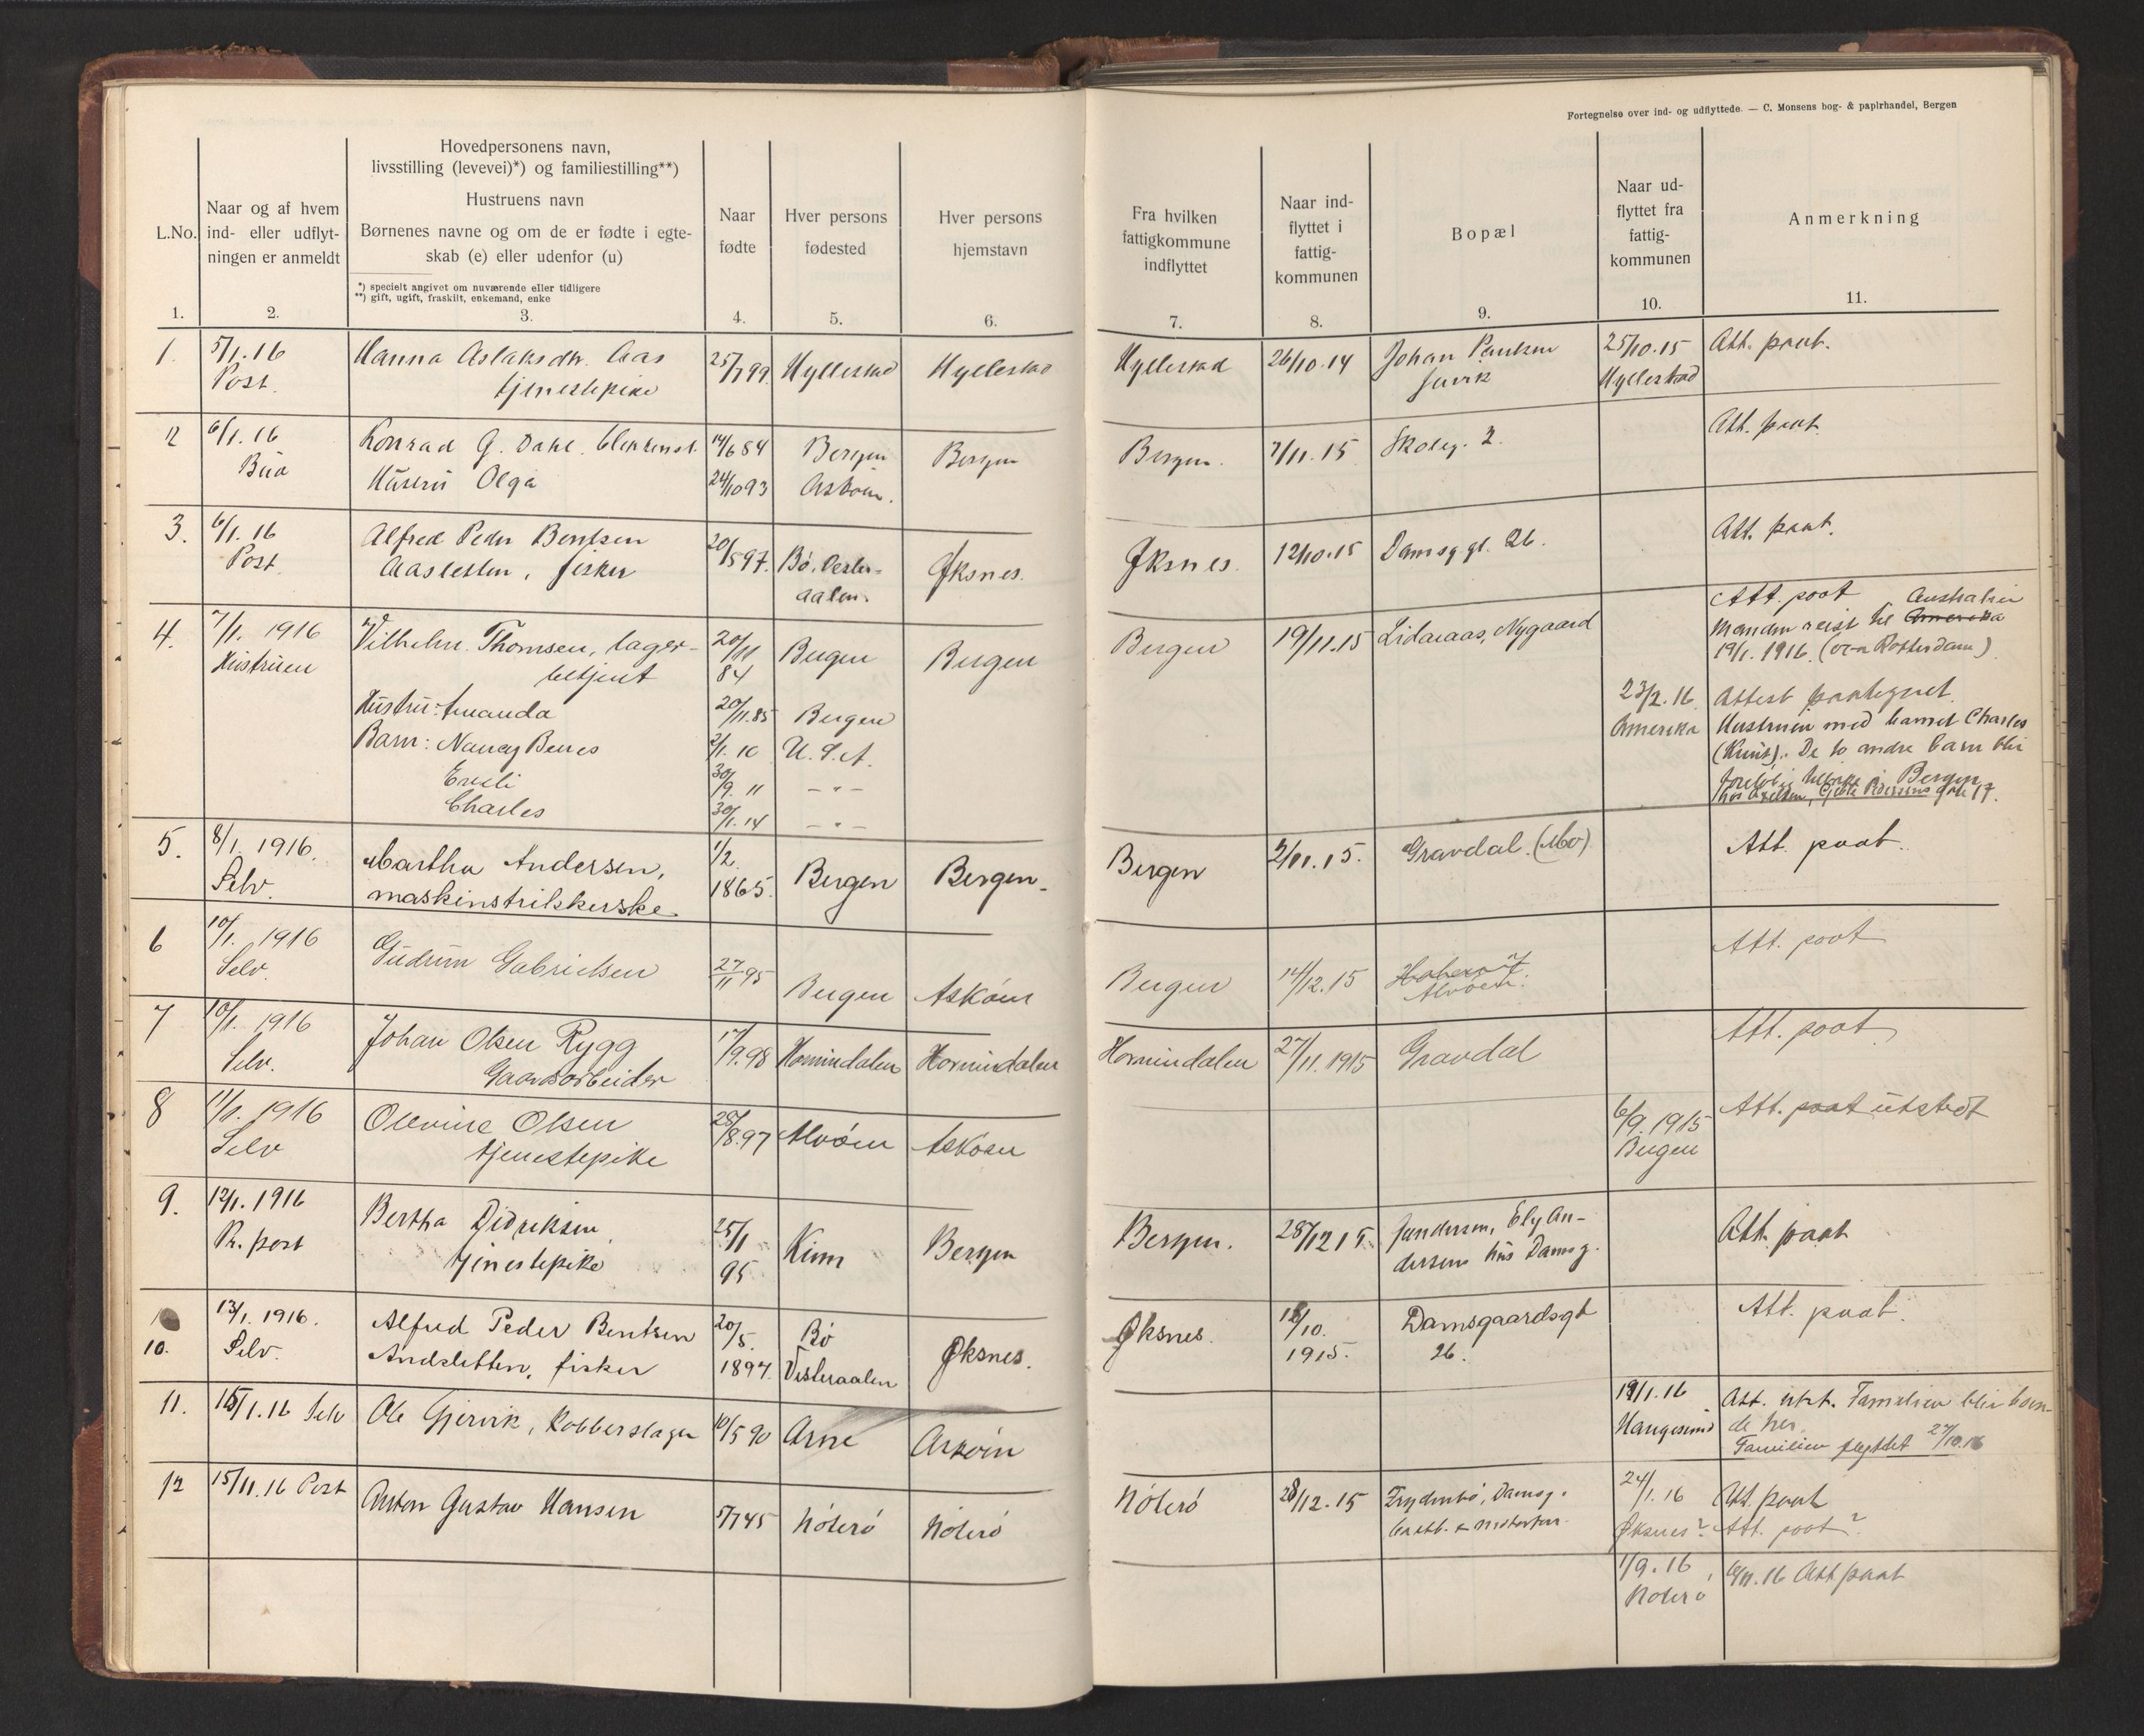 Fortegnelse over ind- og udflyttede. — C. Monsens bog- & papirhandel, Bergen
L.No.
1.
Naar og af hvem
ind- eller udflyt-
ningen er anmeldt
2.
Hovedpersonens navn,
livsstilling (levevei)*) og familiestilling**)
Hustruens navn
Børnenes navne og om de er fødte i egte-
skab (e) eller udenfor (u)
*) specielt angivet om nuværende eller tidligere
**) gift, ugift, fraskilt, enkemand, enke
3.
Naar
fødte
4.
Hver persons
fødested
5.
Hver persons
hjemstavn
6.
Fra hvilken
fattigkommune
indflyttet
7.
Naar ind-
flyttet i
fattig-
kommunen
8.
Bopæl
9.
Naar ud-
flyttet fra
fattig-
kommunen
10.
Anmerkning
11.
1.
5/1.16
Post.
Hanna Aslaksdtr. Aas
tjenestepike
25/7 99.
Hyllestad
Hyllestad
Hyllestad
26/10.14
Johan Paulsen
25/10.15
Hyllestad
Att. paat.
2
6/1.16
Bua
Konrad G. Dahl.
Hustru Olga
14/6 84
24/10 93
Bergen
Askøin.
Bergen
Bergen.
7/11.15
Skoleg. 2.
Att. paat.
3.
6/1.16
Post.
Alfred Peder Bentsen
fisker
20/5 97.
Bø, Vester-
aalen.
Øksnes.
Øksnes.
12/10.15
Damsg.gt. 26.
Att. paat.
4.
7/1. 1916
Hustruen
Vilhelm Thomsen, lager-
betjent
20/11
84
Bergen
Bergen
Bergen
19/11.15
Lidaraas, Nygaard
Att. paat
Australien
Manden reist til Amerika
19/1. 1916. (over Rotterdam)
Hustru: Amanda
20/11.85
Bergen
23/2.16
Amerika
Attest paategnet.
Hustruen med barnet Charles
De to andre barn blir
Bergen
gate 17.
Barn: Nancy
2/1.10
U.S.A.
30/9.11
— " —
Charles
30/1.14
— " —
5.
8/1. 1916.
Selv.
Martha Andersen,
maskinstrikkerske
1/2.
1865.
Bergen
Bergen.
Bergen
2/11.15.
Gravdal. (Mo)
Att. paat.
6
10/1. 1916
Selv.
Gudrun Gabrielsen
27/11 95
Bergen
Askøen
Bergen
14/12.15
Alvøen.
Att. paat
7
10/1. 1916
Selv.
Johan Olsen Rygg
Gaardsarbeider
17/9.98
Hornindalen
Hornindalen
Hornindalen
27/11.1915
Gravdal
Att. paat.
8
11/1. 1916
Selv
Olevine Olsen
tjenestepike
28/8.97
Alvøen
Askøen
6/9.1915
Bergen
Att. paat utstedt
9.
12/1. 1916
R. post
Bertha Didriksen
tjenestepike
25/1
95
Kinn
Bergen
Bergen.
28/12 15.
Gundersen, Ely An-
dersens hus Damsg.
Att. paat
10.
13/1. 1916.
Selv.
Alfred Peder Bentsen
Andsletten, fisker
20/5.
1897.
Bø
Vesteraalen
Øksnes.
Øksnes.
12/10.
1915.
Damsgaardsgt
26.
Att. paat.
11.
15/1.16 Selv
Ole Gjervik, Kobberslager
10/5 90
Arne
Askøin
19/1.16
Haugesund
Att. utst. Familien blir boen-
de her.
Familien flyttet 27/10.16
12
15/11.16 Post
Anton Gustav Hansen
5/7 45
Nøterø
Nøterø
Nøterø
28/12.15
Frydenbø, Damsg.
24/1.16
Øksnes?
Att. paat
Att. paat?
1/9.16
Nøterø
6/11.16 Att paat